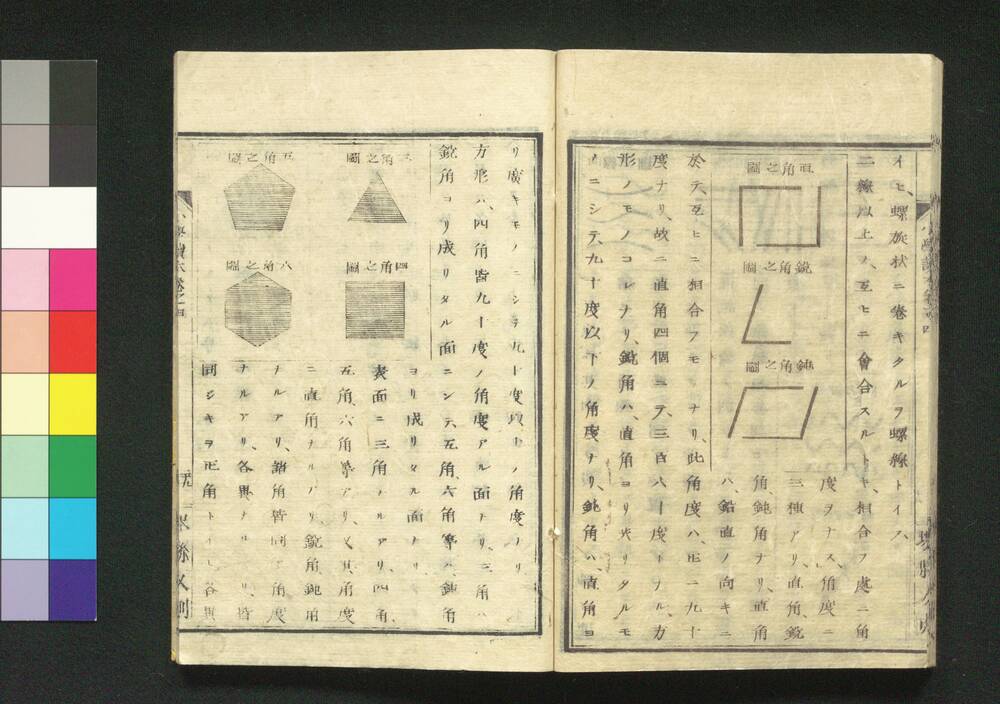 イヒ、螺旋状ニ卷キタルヲ螺線トイフ、
二線以上ノ、互ヒニ會合スルトキ、相合フ處ニ角
度ヲナス、角度ニ
三種アリ、直角、鋭
角、鈍角ナリ、直角
ハ、鉛直ノ向キニ
直角之圖
鋭角之圖
鈍角之圖
於テ、互ヒニ相合フモノナリ、此角度ハ、正ニ九十
度ナリ、故ニ直角四個ニテ、三百六十度トナル、方
形ノモノコレナリ、鋭角ハ、直角ヨリ尖リタルモ
ノニシテ、九十度以下ノ角度ナリ、鈍角ハ、直角ヨ
リ廣キモノニシテ九十度以上ノ角度ナリ
方形ハ、四角皆九十度ノ角度アル面ナリ、三角ハ
鋭角ヨリ成リタル面ニシテ、五角、六角等ハ、鈍角
ヨリ成リタル面ナリ
表面ニ三角ナルアリ、四角、
五角、六角等アリ、又其角度
ニ直角ナルアリ、鋭角鈍角
ナルアリ、諸角皆同ジ角度
ナルアリ、各異ナルアリ、皆
同ジキヲ正角トイヒ、各異
三角之圖
四角之圖
五角之圖
六角之圖